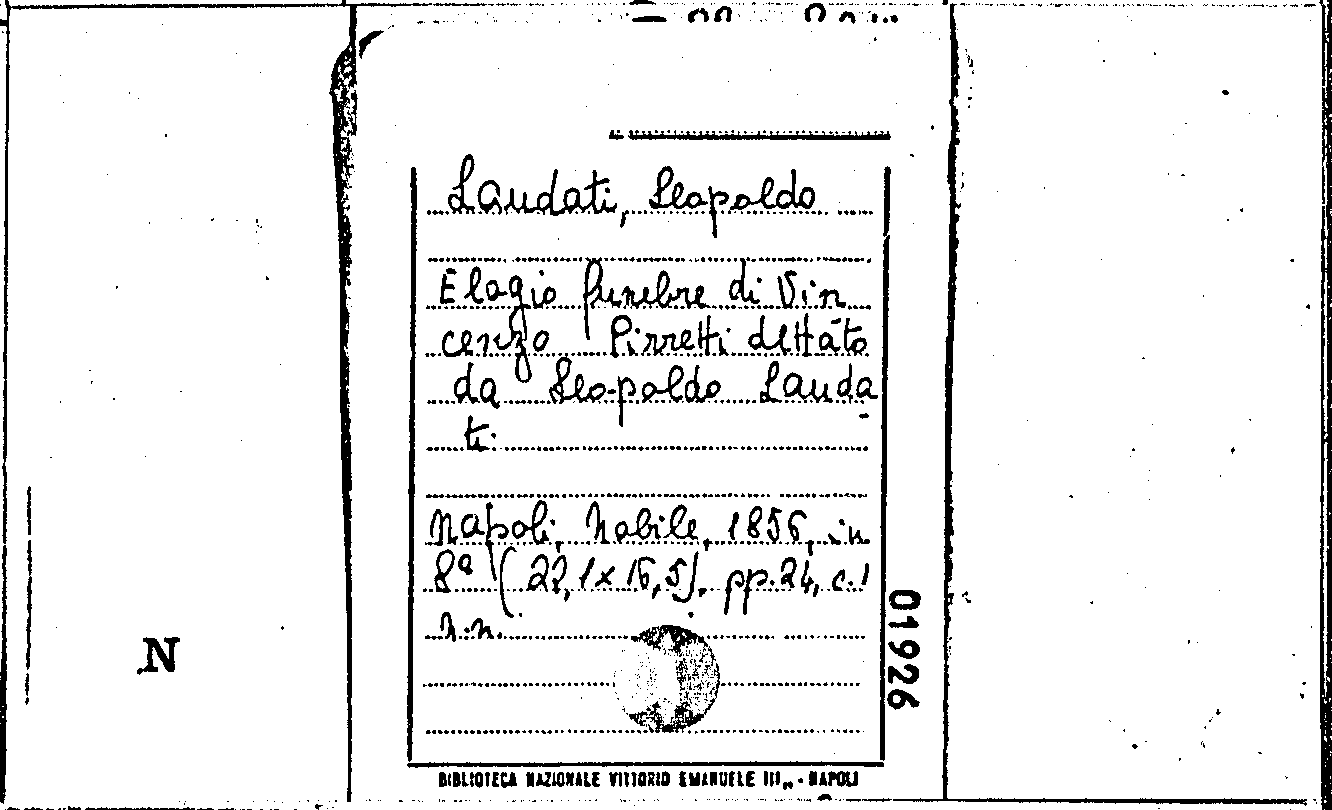 Laudati, Leopoldo
Elogio funebre di Vin
cenzo Pirretti dettato
da Leopoldo Lauda
ti.
Napoli, Nobile, 1856, in
8º (22,1x16,5), pp.24, c.1
n.n.
01926
N
BIBLIOTECA NAZIONALE VITTORIO EMANUELE III,, - NAPOLI